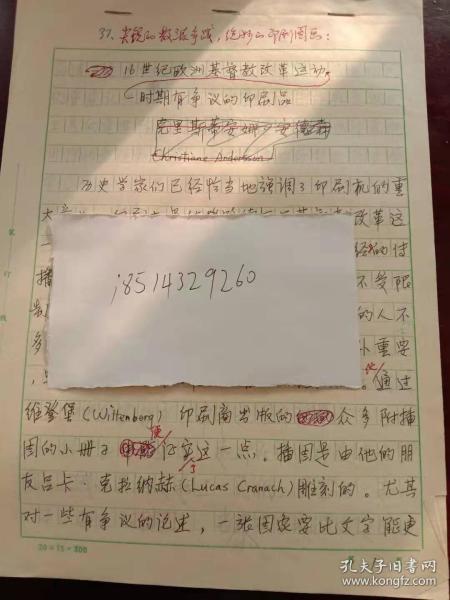 37. 尖锐的教派争战，绝妙的印刷图画：
16世纪欧洲基督教改革运动
一时期有争议的印刷品
克里斯蒂安娜·安德森
Christiane Andersson
历史学家们已经恰当地强调了印刷机的重
改革这
18514329260
的传
播
不受限
的人不
多
重要
。通过
维登堡(Wittenberg)印刷商出版的众多附插
图的小册子便证实了这一点。插图是由他的朋
友吕卡·克拉纳赫(Lucas Cranach)雕刻的。尤其
对一些有争议的论述，一张图画要比文字能更
20×15=300
孔夫子旧书网
www.kongfz.com